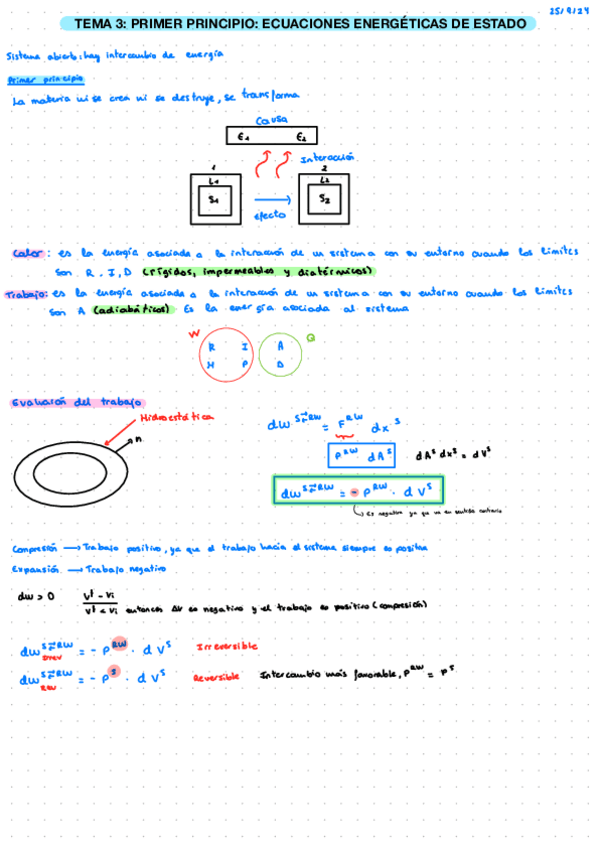 25/9/24
TEMA 3: PRIMER PRINCIPIO: ECUACIONES ENERGÉTICAS DE ESTADO
Sistema abierto: hay intercambio de energía
Primer principio
La materia ni se crea ni se destruye, se transforma
Causa
E1 E2
Interacción
1 2
L1 L2
S1 S2
efecto
Calor: es la energía asociada a la interacción de un sistema con su entorno cuando los límites
son R, I, D (rígidos, impermeables y diatérmicos)
Trabajo: es la energía asociada a la interacción de un sistema con su entorno cuando los límites
son A (adiabáticos) Es la energía asociada al sistema
W Q
R I A
H P D
Evaluación del trabajo
Hidroestática
n
dW S⇄RW = F RW dx S
P RW dA S
dA S dx S = dV S
dW S⇄RW = - P RW · dV S
Es negativo ya que va en sentido contrario
Compresión → Trabajo positivo, ya que el trabajo hacia el sistema siempre es positivo
Expansión → Trabajo negativo
dw > 0
Vf - Vi
Vf < Vi entonces ΔV es negativo y el trabajo es positivo (compresión)
dW S⇄RW Irrev = - P RW · dV S Irreversible
dW S⇄RW Rev = - P S · dV S Reversible Intercambio más favorable, P RW = P S